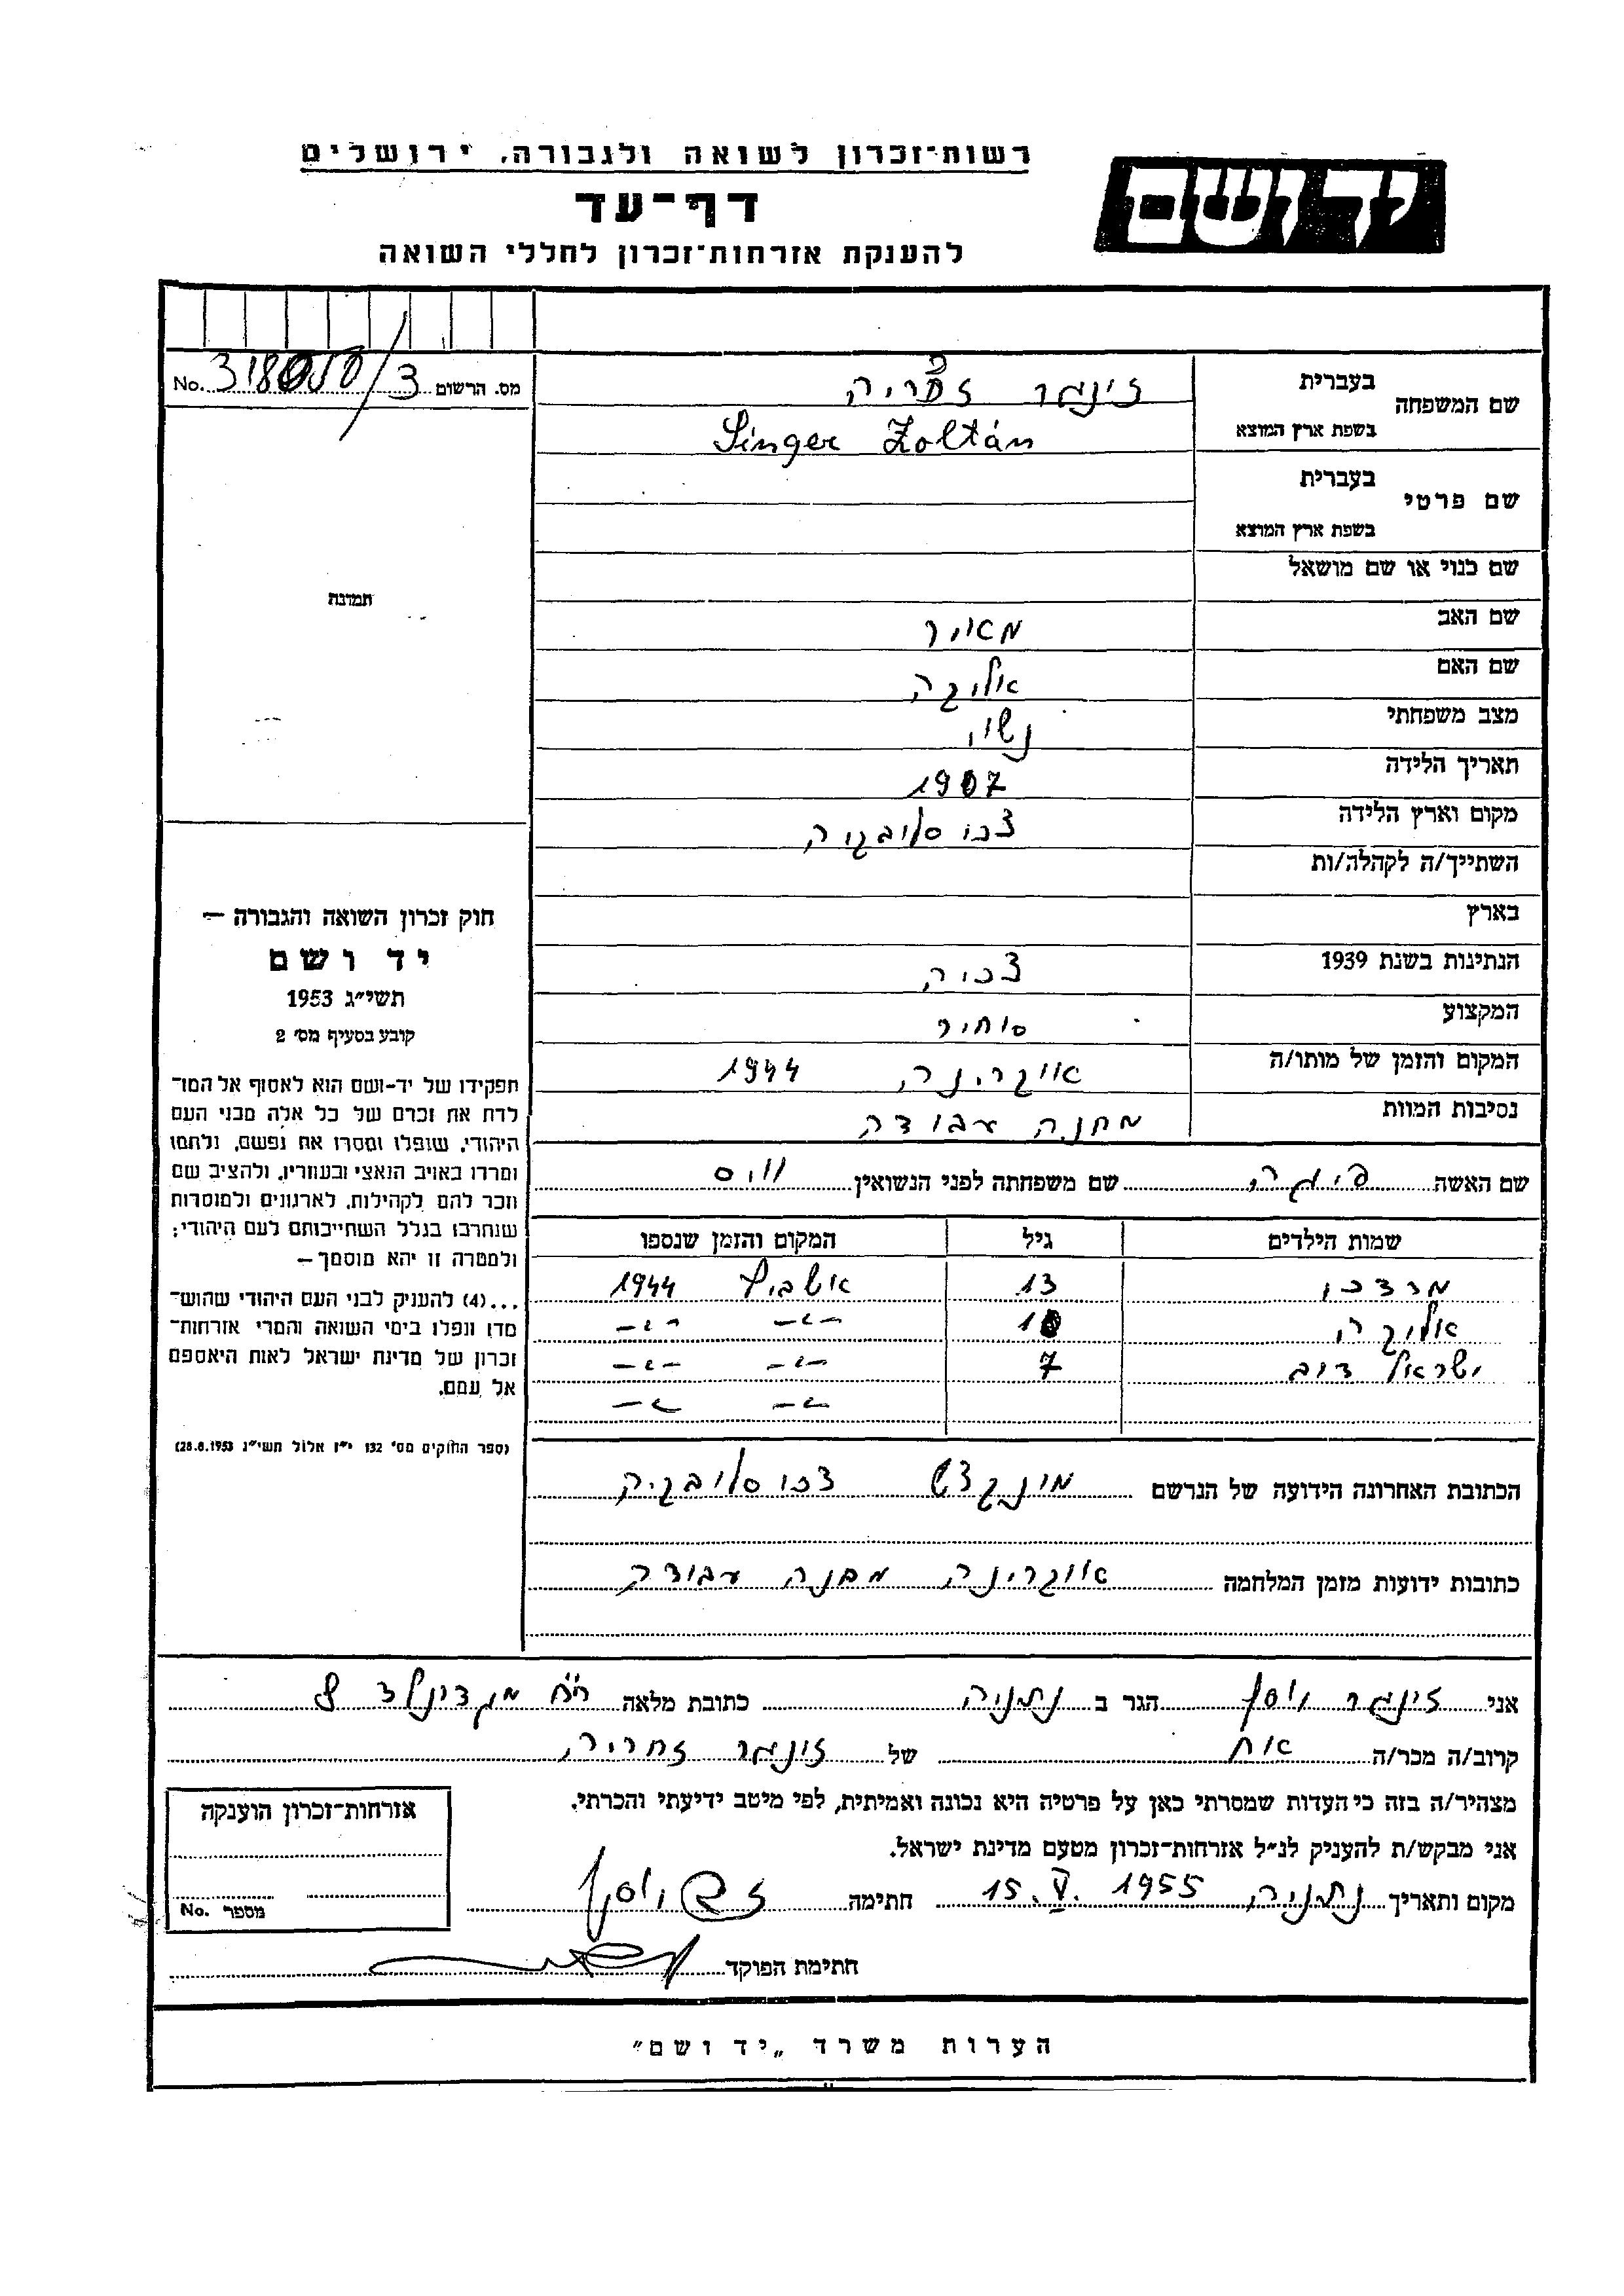 רשות־זכרון לשואה ולגבורה, ירושלים
יד ושם
דף־עד
להענקת אזרחות־זכרון לחללי השואה
מס. הרשום 3 / No. 318050
שם המשפחה
בעברית זינגר זכריה
בשפת ארץ המוצא Singer Zoltán
שם פרטי
בעברית
בשפת ארץ המוצא
שם כנוי או שם מושאל
שם האב מאיר
שם האם
מצב משפחתי נשוי
תאריך הלידה 1907
מקום וארץ הלידה צכוסלובקיה
השתייך/ה לקהלה/ות
בארץ
הנתינות בשנת 1939 צכיה
המקצוע סוחר
המקום והזמן של מותו/ה אוקרינה 1944
נסיבות המוות מחנה עבודה
שם האשה שם משפחתה לפני הנשואין
שמות הילדים גיל המקום והזמן שנספו
מרדכי 13 אושביץ 1944
10 -"- -"-
ישראל דוב 7 -"- -"-
-"- -"-
הכתובת האחרונה הידועה של הנרשם מונקצש צכוסלובקיה
כתובות ידועות מזמן המלחמה אוקרינה מחנה עבודה
תמונה
חוק זכרון השואה והגבורה —
יד ושם
תשי״ג 1953
קובע בסעיף מס׳ 2
תפקידו של יד־ושם הוא לאסוף אל המו־
לדת את זכרם של כל אלה מבני העם
היהודי, שנפלו ומסרו את נפשם, נלחמו
ומרדו באויב הנאצי ובעוזריו, ולהציב שם
וזכר להם לקהילות, לארגונים ולמוסדות
שנחרבו בגלל השתייכותם לעם היהודי;
ולמטרה זו יהא מוסמך—
...(4) להעניק לבני העם היהודי שהוש־
מדו ונפלו בימי השואה והמרי אזרחות־
זכרון של מדינת ישראל לאות היאספם
אל עמם.
(ספר החוקים מס׳ 132 י״ז אלול תשי״ג 28.8.1953)
אני זינגר יוסף הגר ב נתניה כתובת מלאה רח׳ מקדונלד 8
קרוב/ה מכר/ה אח של זינגר זכריה
מצהיר/ה בזה כי העדות שמסרתי כאן על פרטיה היא נכונה ואמיתית, לפי מיטב ידיעתי והכרתי.
אני מבקש/ת להעניק לנ״ל אזרחות־זכרון מטעם מדינת ישראל.
מקום ותאריך נתניה 15.V.1955 חתימה
חתימת הפוקד
אזרחות־זכרון הוענקה
מספר No.
הערות משרד „יד ושם״